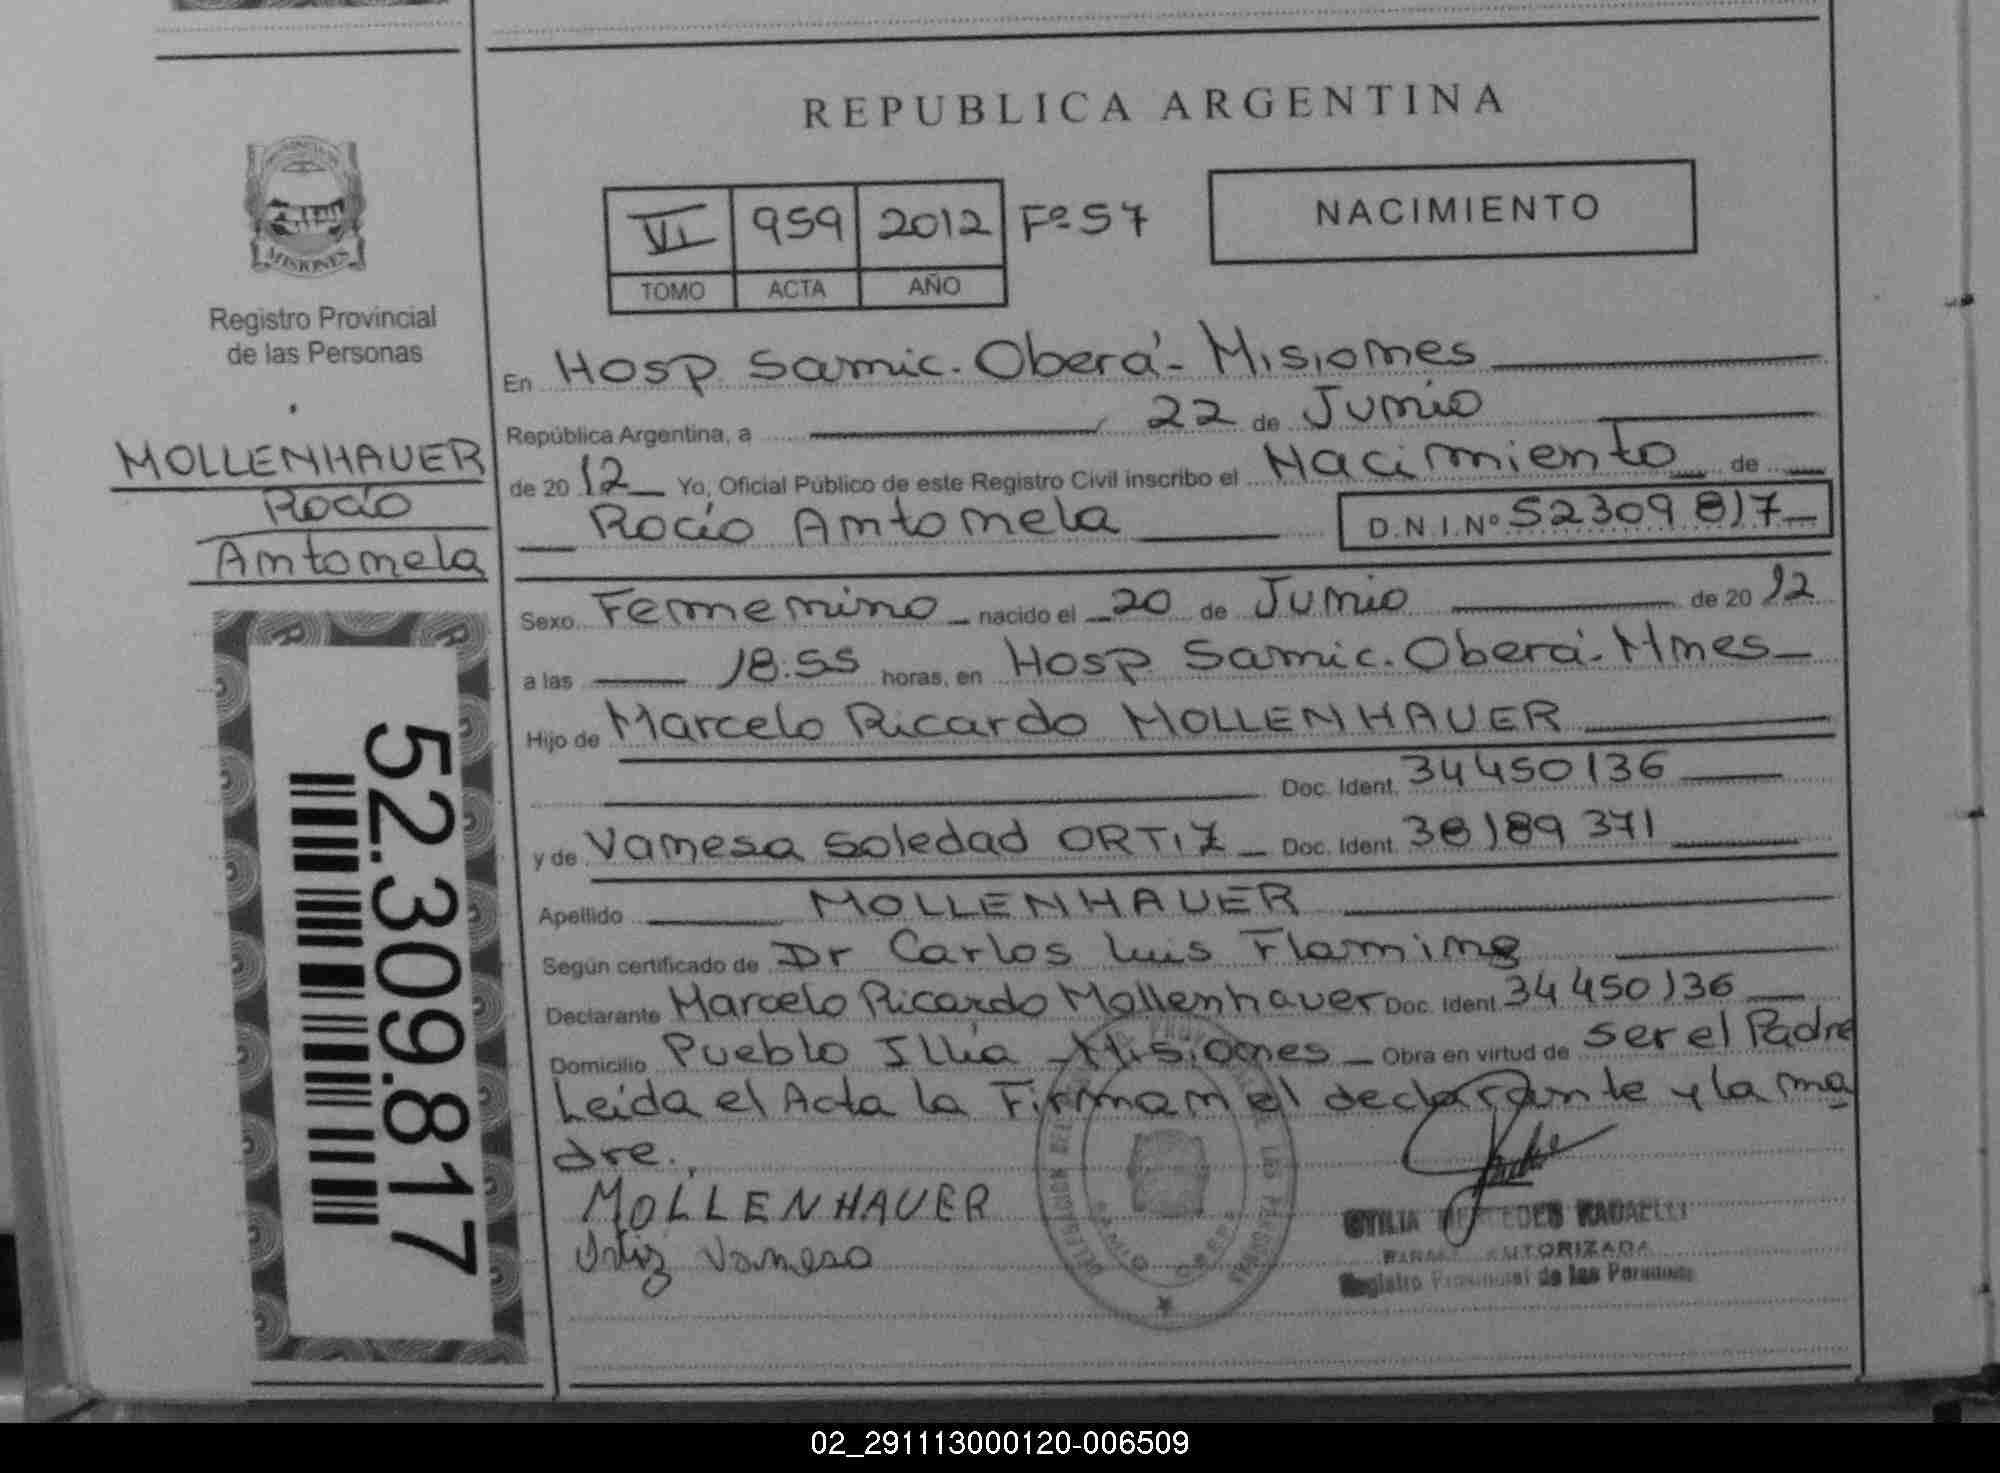 REPUBLICA ARGENTINA
VI 959 2012 Fº 57
TOMO ACTA AÑO
NACIMIENTO
MISIONES
Registro Provincial
de las Personas
MOLLENHAUER
Rocío
Antonela
52.309.817
En Hosp Samic. Oberá - Misiones
República Argentina, a 22 de Junio
de 2012 Yo, Oficial Público de este Registro Civil inscribo el Nacimiento de
Rocío Antonela D.N.I.Nº 52309817
Sexo Femenino nacido el 20 de Junio de 2012
a las 18:55 horas, en Hosp Samic. Oberá - Mnes
Hijo de Marcelo Ricardo MOLLENHAUER
Doc. Ident. 34450136
y de Vanesa Soledad ORTIZ Doc. Ident. 38189371
Apellido MOLLENHAUER
Según certificado de Dr Carlos Luis Flaming
Declarante Marcelo Ricardo Mollenhauer Doc. Ident. 34450136
Domicilio Pueblo Illia - Misiones Obra en virtud de ser el Padre
Leída el Acta la Firman el declarante y la ma
dre.
MOLLENHAUER
Ortiz Vanesa
MERCEDES RADAELLI
AUTORIZADA
Registro Provincial de las Personas
02_291113000120-006509